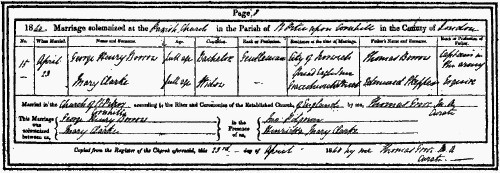 Page 1
1840. Marriage solemnized at the Parish Church in the Parish of St Peter upon Cornhill in the County of London
When Married. Name and Surname. Age Condition. Rank or Profession. Residence at the time of Marriage. Father's Name and Surname. Rank or Profession of Father.
15 April 23 George Henry Borrow full age Bachelor Gentleman City of Norwich Thomas Borrow Captain in the Army
Mary Clarke full age Widow — Gracechurch Street Edmund Skepper Esquire
Married in the Church of St Peter Cornhill according to the Rites and Ceremonies of the Established Church, of England by me,
This Marriage was solemnized between us, George Henry Borrow Mary Clarke In the Presence of us, Henrietta Mary Clarke
Copied from the Register of the Church aforesaid, this 23rd day of April 1840 by me